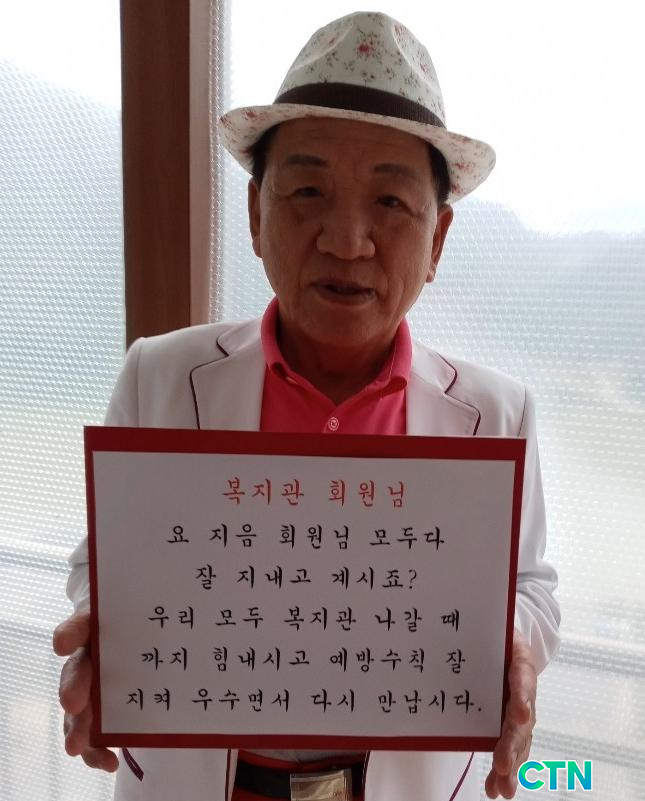 복지관 회원님
요 지음 회원님 모두다
잘 지내고 계시죠?
우리 모두 복지관 나갈 때
까지 힘내시고 예방수칙 잘
지켜 우수면서 다시 만납시다.
CTN